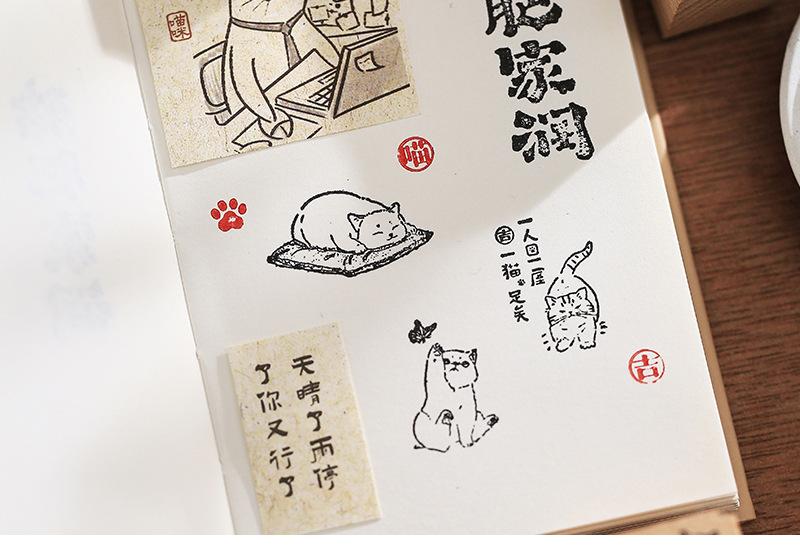 喵咪
肥家润
喵
一人一屋
吉一猫足矣
吉
天晴了雨停
了你又行了